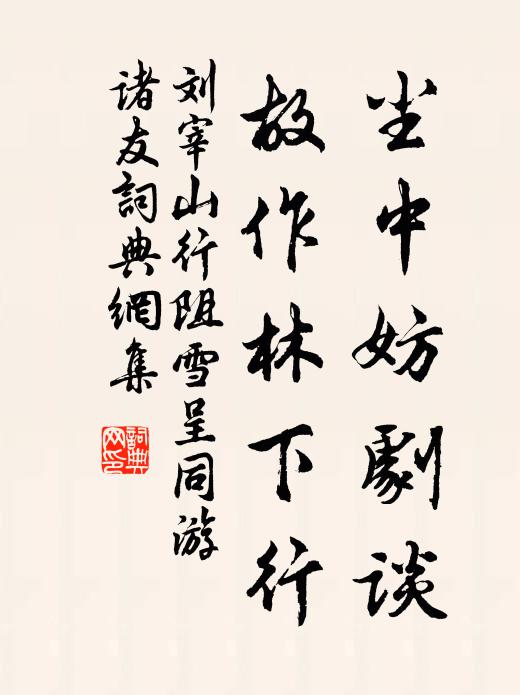 坐中妨劇谈
故作林下行
刘宰山行阻雪呈同游
诸友詞典網集
詞典
网印